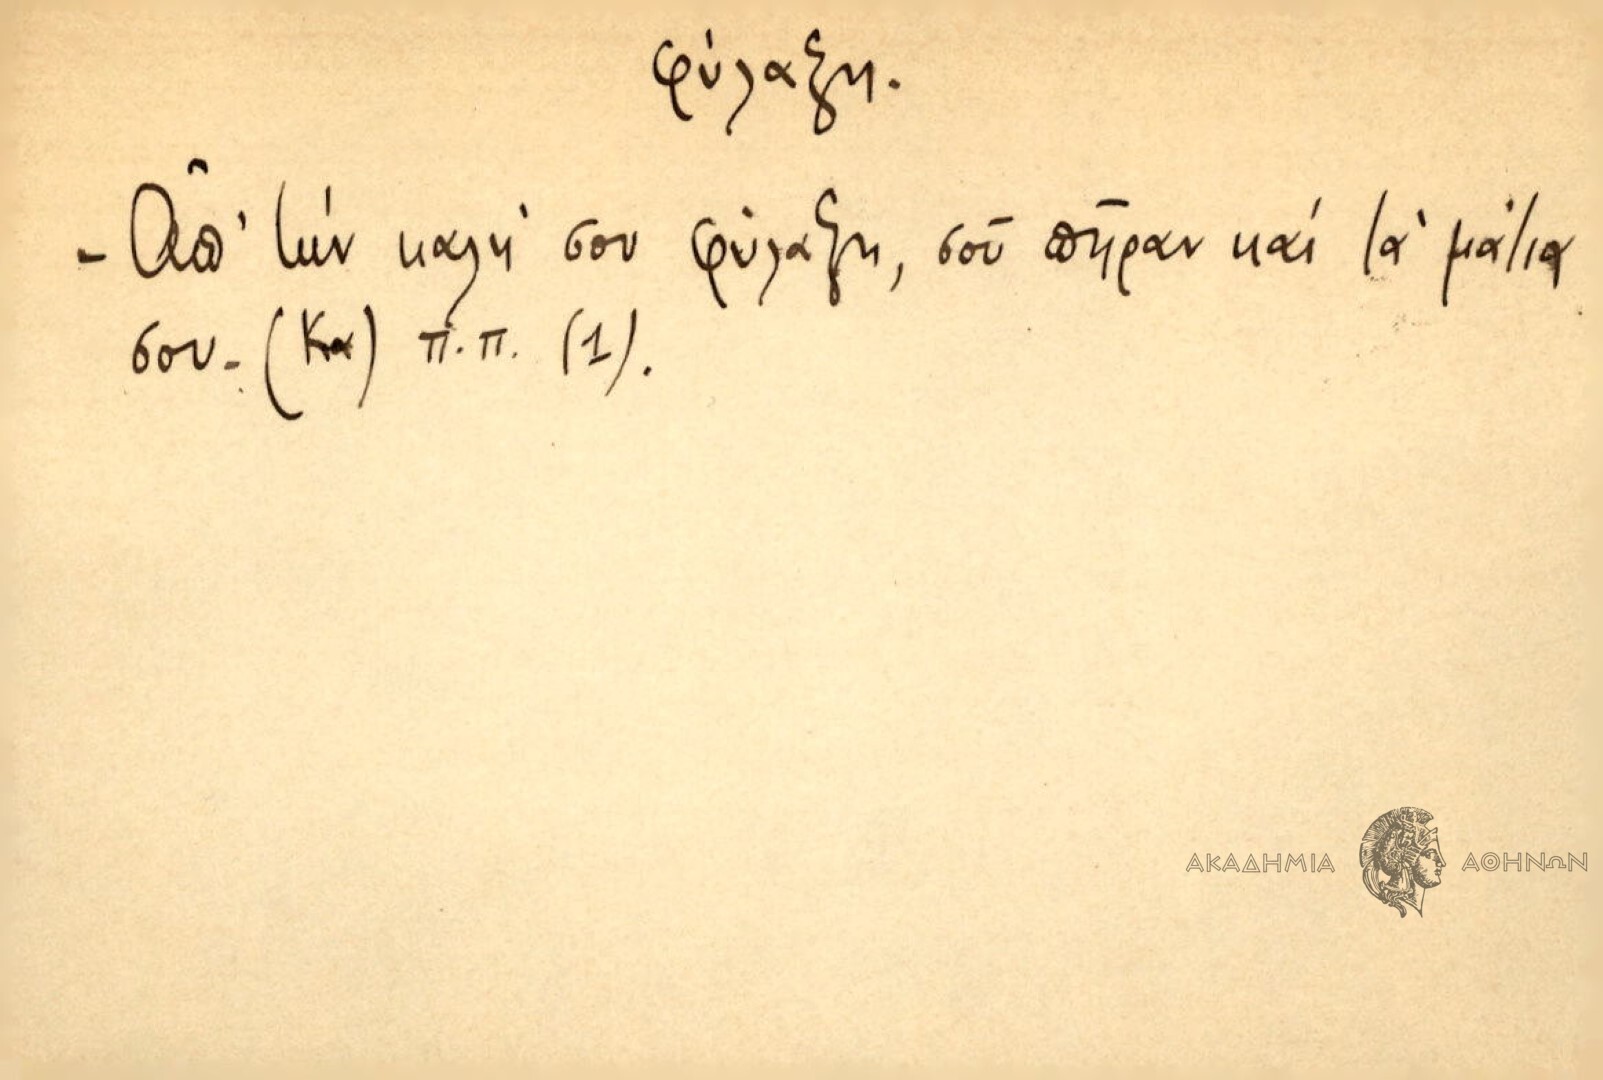 φύλαξη.
- Ἀπ' τήν καλή σου φύλαξη, σοῦ πῆραν καί τά μάτια
σου - (Κα) π.π. (1).
ΑΚΑΔΗΜΙΑ ΑΘΗΝΩΝ